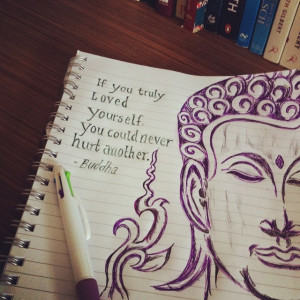 If you truly
Loved
yourself.
You could never
hurt another.
- Buddha